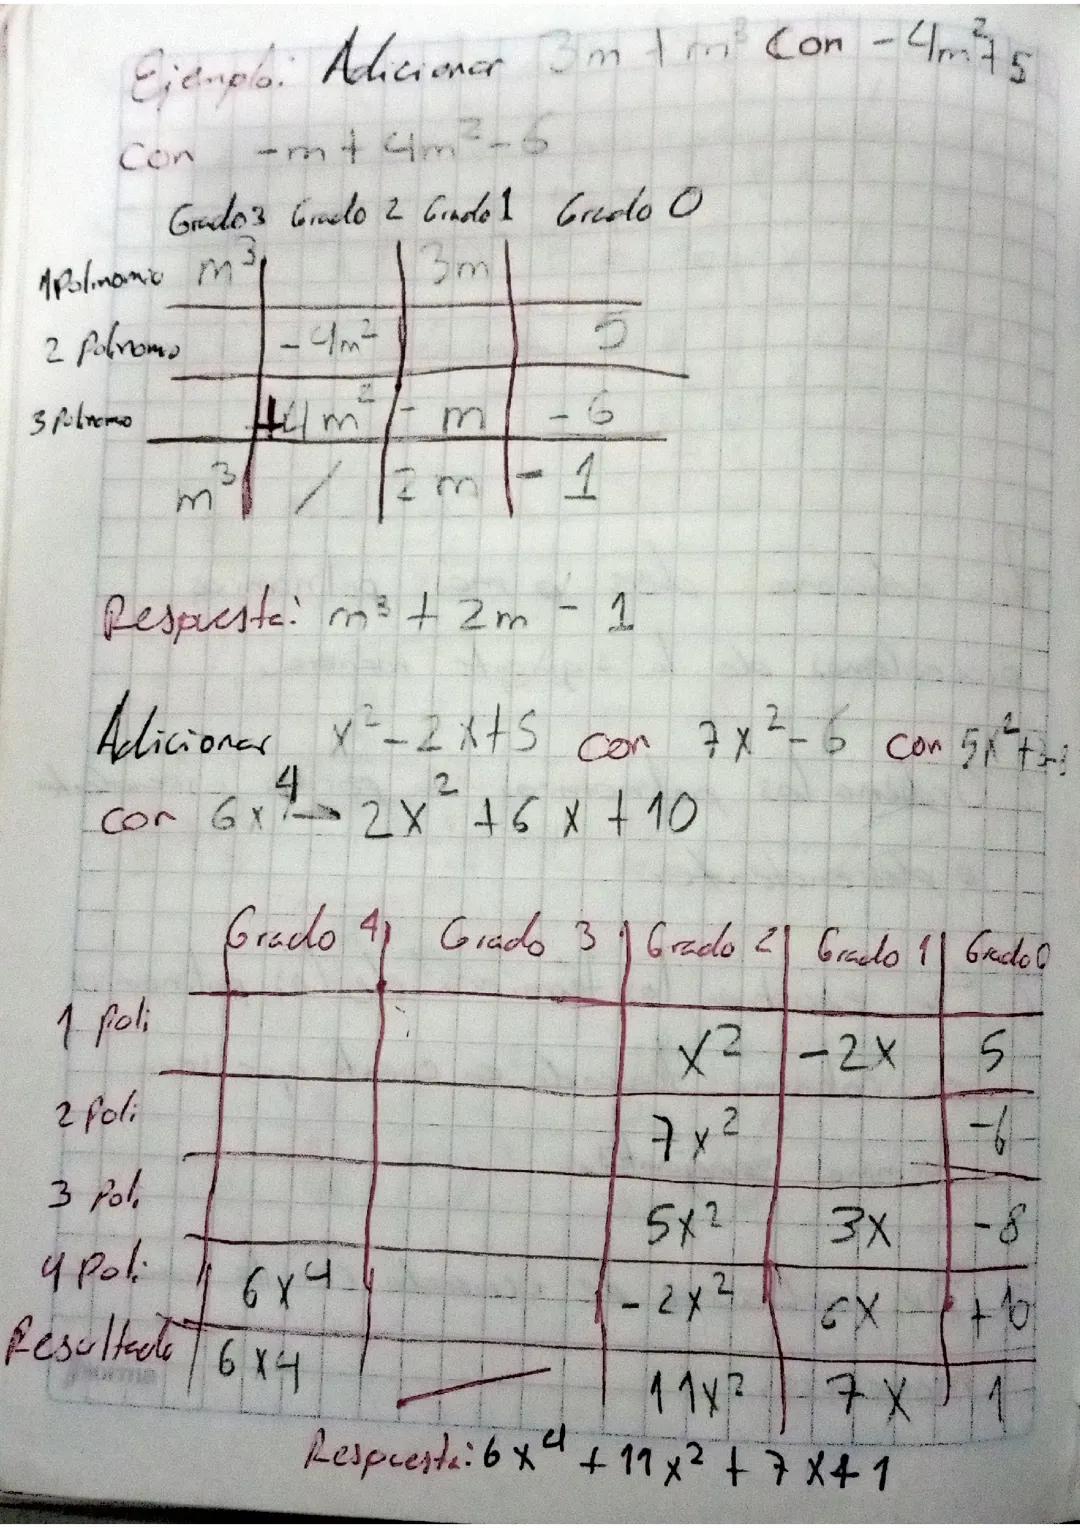 Ejemplo: Adicionar 3m + m³ Con -4m²+5
Con -m + 4m² - 6
Grado 3 Grado 2 Grado 1 Grado 0
1 Polinomio m³ 3m
2 Polinomio -4m² 5
3 Polinomio +4m² - m - 6
m³ / 2m - 1
Respuesta: m³ + 2m - 1
Adicionar x²-2x+5 con 7x²-6 con 5x²+
con 6x⁴ - 2x² + 6x + 10
Grado 4 Grado 3 Grado 2 Grado 1 Grado 0
1 Poli x² -2x 5
2 Poli 7x² -6
3 Poli 5x² 3x -8
4 Poli 6x⁴ -2x² 6x +10
Resultado 6x4 — 11x² 7x 1
norma
Respuesta: 6x⁴ + 11x² + 7x + 1